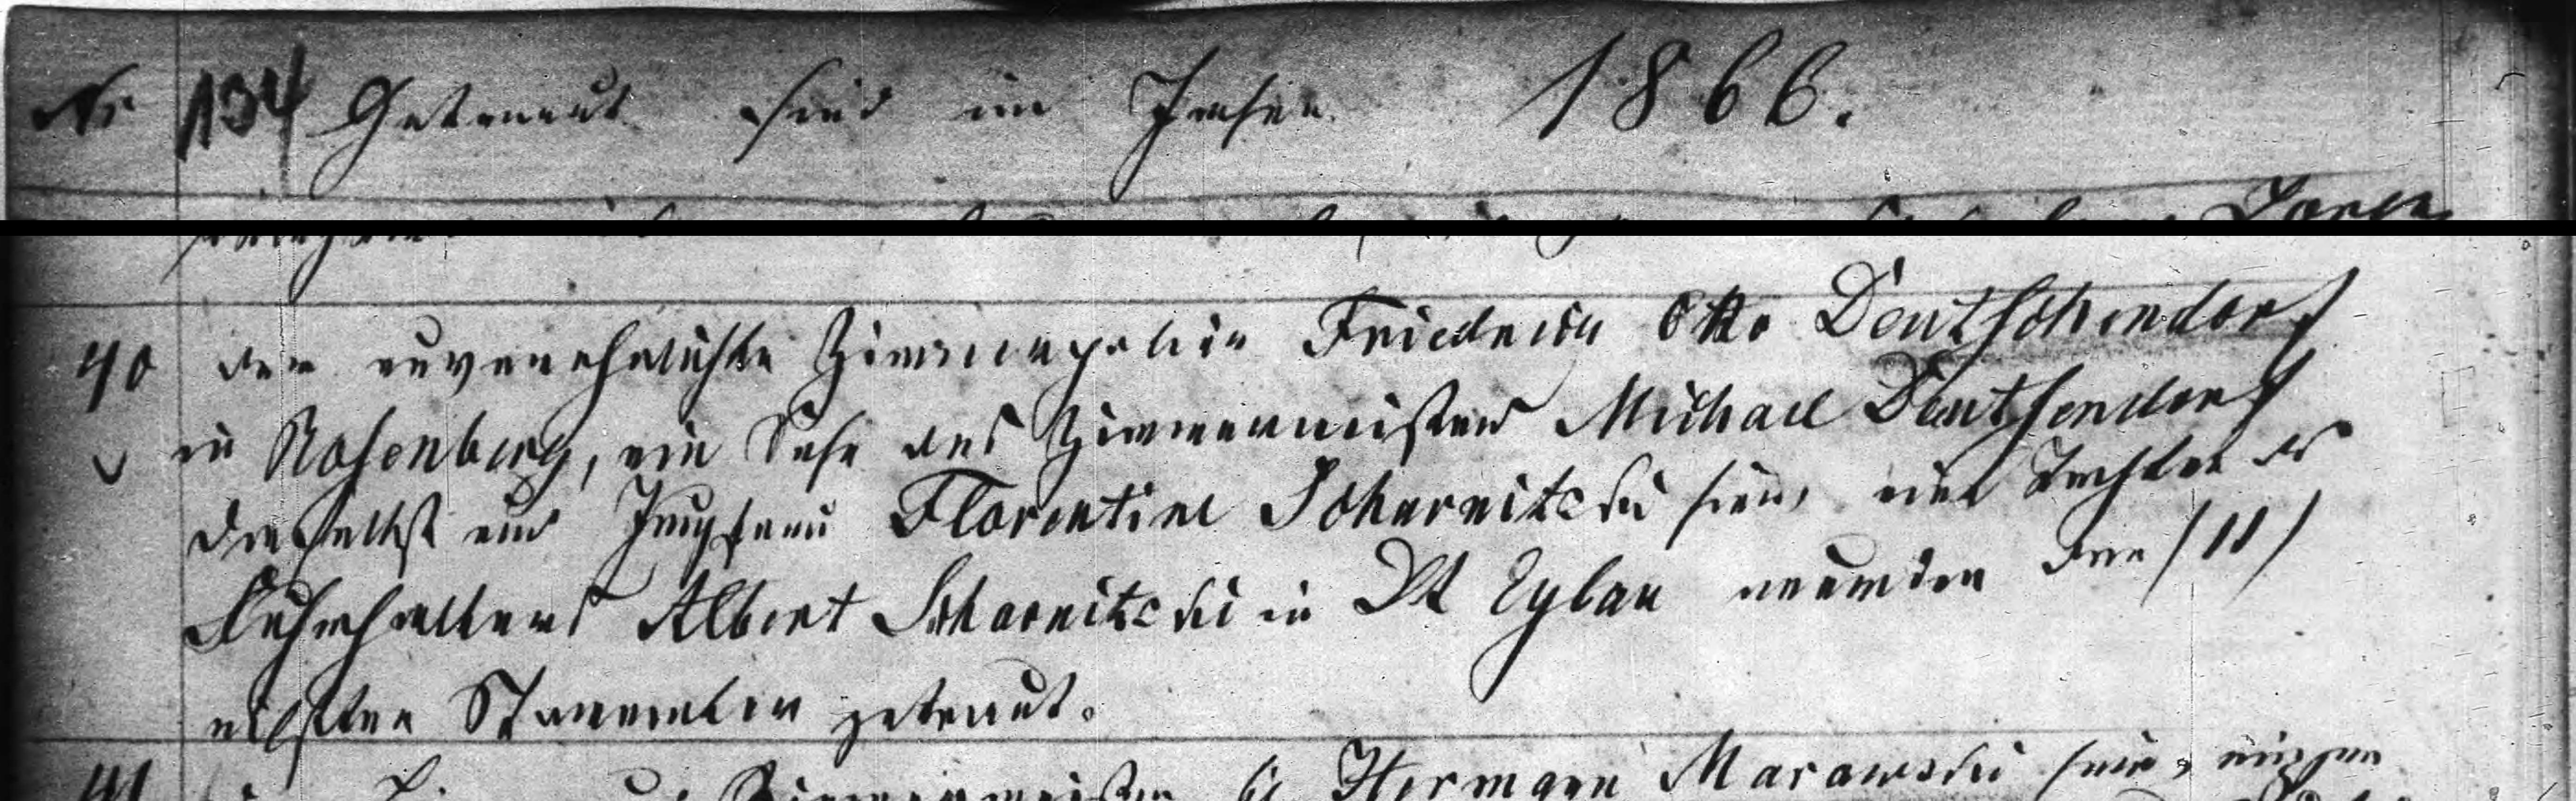 No 134 Getraut sind im Jahre 1866.
40 der unverehelichte Zimmerpolier Friedrich Otto Deutschendorf
in Rosenberg, ein Sohn des Zimmermeisters Michael Deutschendorf
daselbst und Jungfrau Florentine Scharnitzki hier, eine Tochter des
Fuhrhalters Albert Scharnitzki in Dt Eylau wurden den (11)
elften November getraut.
41 Hermann Marawski hier,